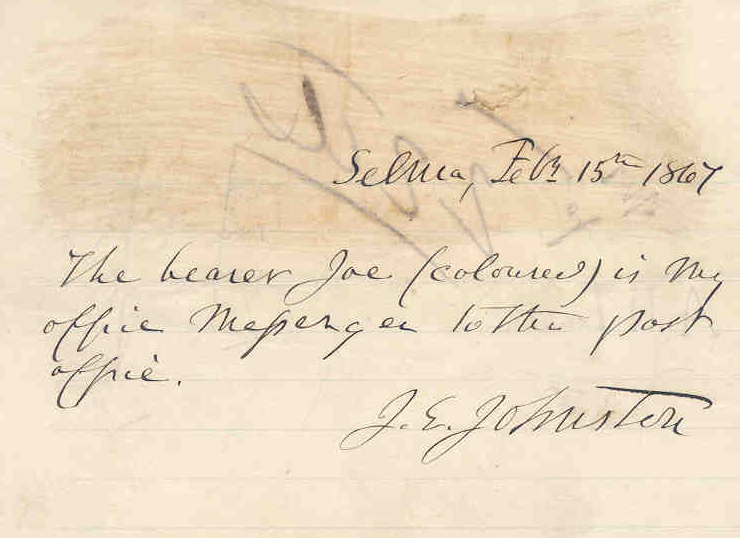 Selma, Feby 15th 1867
The bearer Joe (coloured) is my
office Messenger to the post
office.
J. E. Johnston